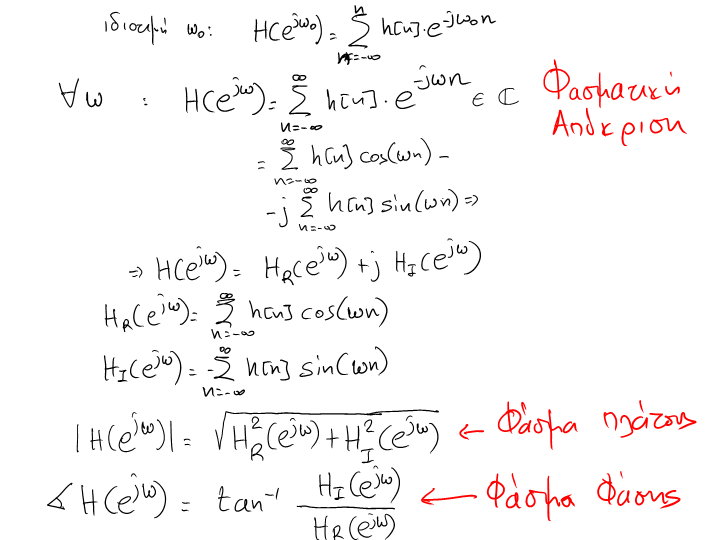 ιδιοτιμή ω₀: H(e^{jω₀}) = Σ_{n=-∞}^{n} h[n]·e^{-jω₀n}
∀ω : H(e^{jω}) = Σ_{n=-∞}^{∞} h[n]·e^{-jωn} ∈ ℂ Φασματική
Απόκριση
= Σ_{n=-∞}^{∞} h[n] cos(ωn) -
-j Σ_{n=-∞}^{∞} h[n] sin(ωn) ⇒
⇒ H(e^{jω}) = H_R(e^{jω}) + j H_I(e^{jω})
H_R(e^{jω}) = Σ_{n=-∞}^{∞} h[n] cos(ωn)
H_I(e^{jω}) = -Σ_{n=-∞}^{∞} h[n] sin(ωn)
|H(e^{jω})| = √(H_R^2(e^{jω}) + H_I^2(e^{jω})) ← Φάσμα πλάτους
∢ H(e^{jω}) = tan^{-1} H_I(e^{jω}) / H_R(e^{jω}) ← Φάσμα Φάσης